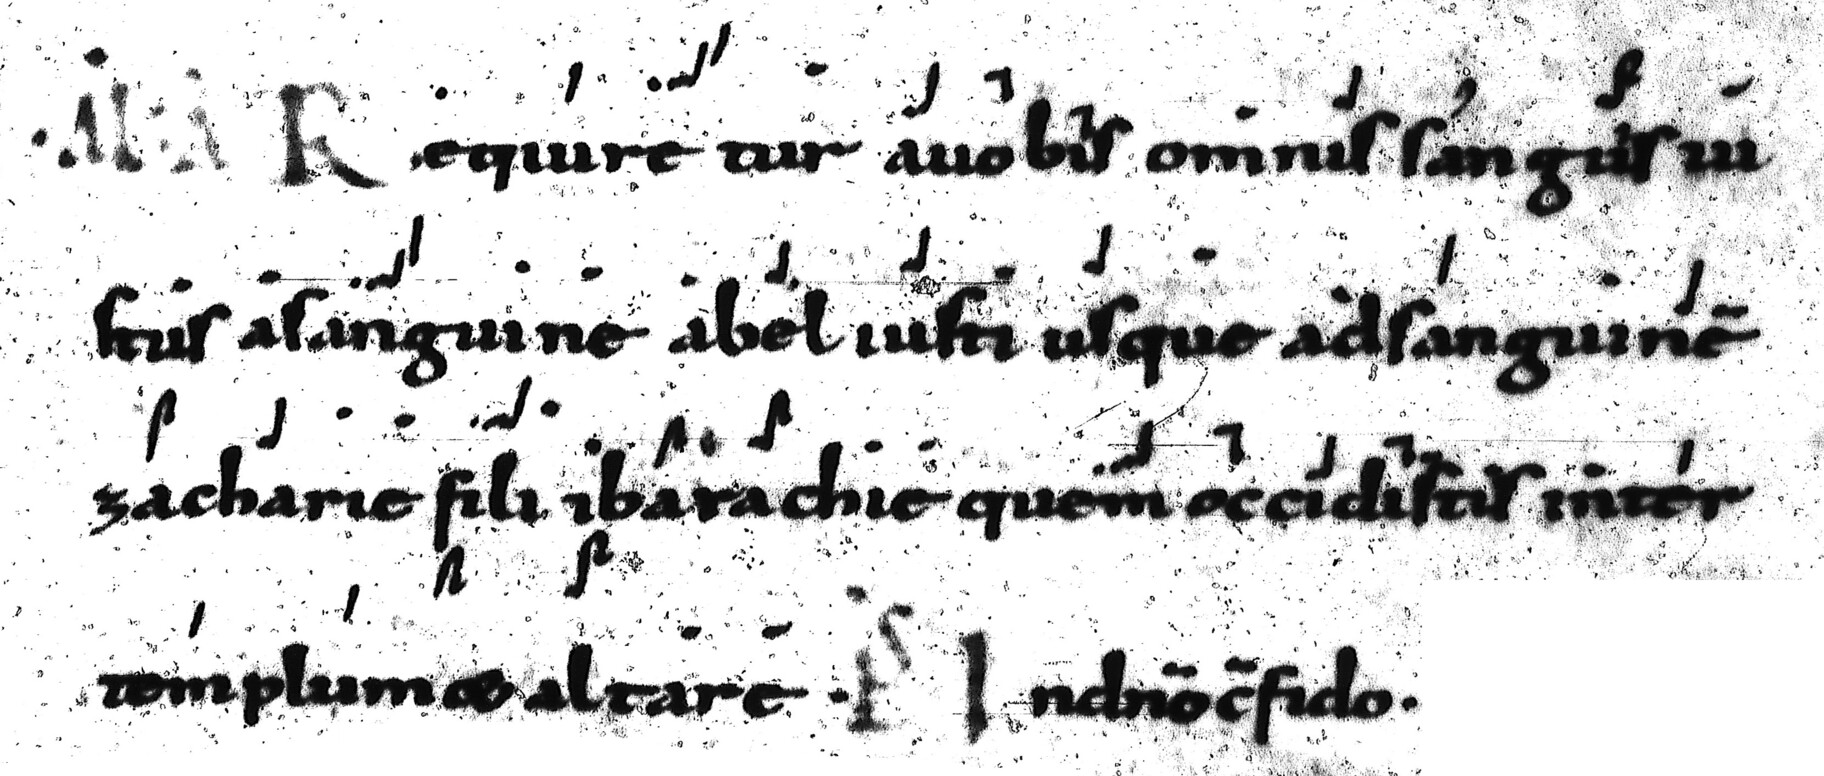 ·A·A· Requiretur auobis omnis sanguis iu
stus asanguine abel iusti usque adsanguinẽ
zacharie fili ibarachie quem occidistis inter
templum & altare · PS Indnõ c̃fido·